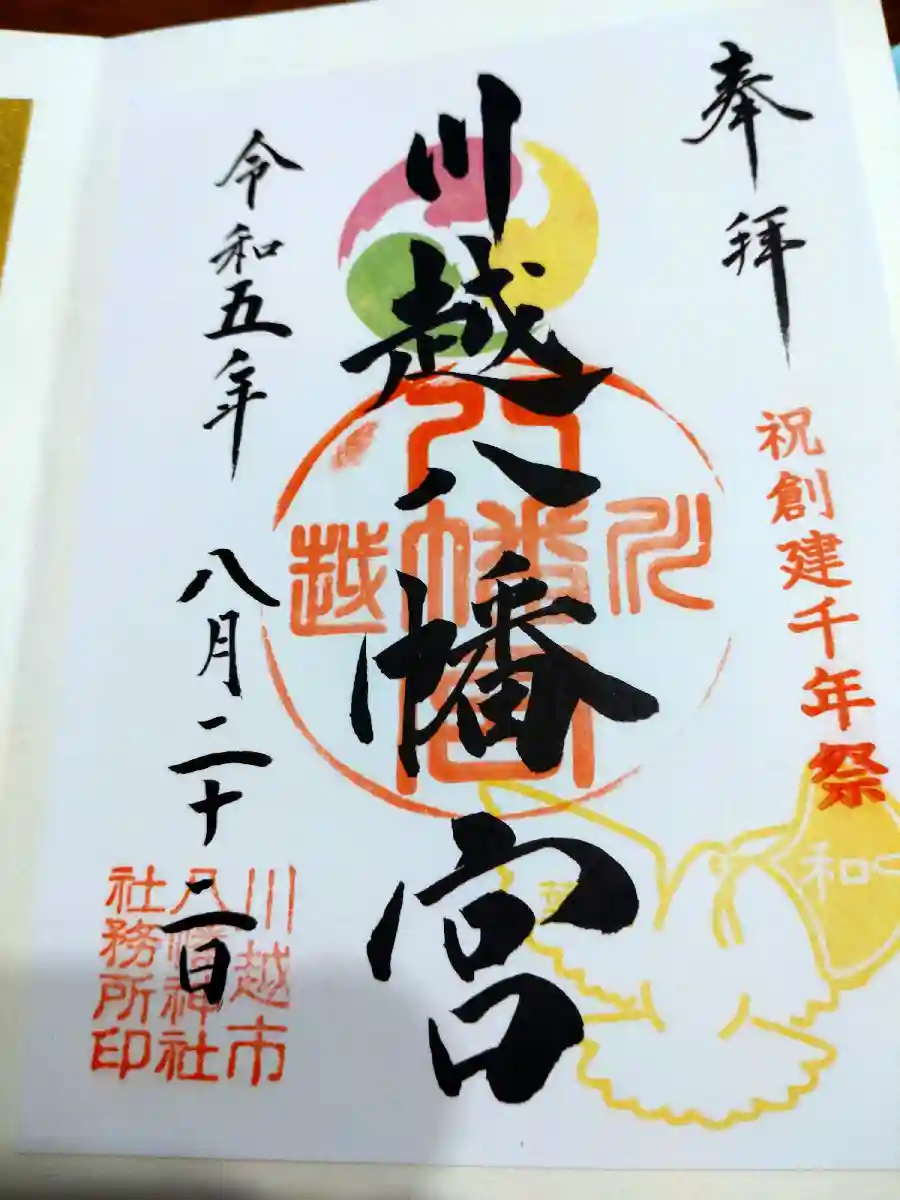 奉拝
祝創建千年祭
川越八幡宮
川越
八幡宮
和
令和五年
八月二十二日
川越市
八幡神社
社務所印